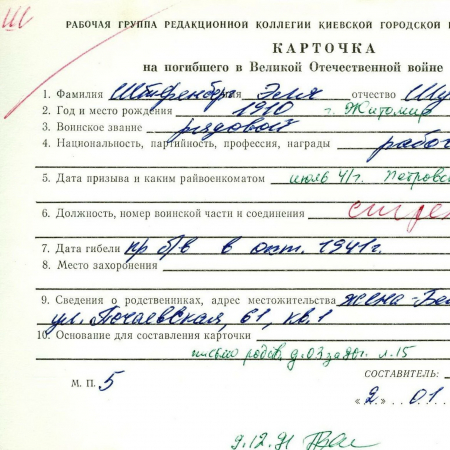 Ш
РАБОЧАЯ ГРУППА РЕДАКЦИОННОЙ КОЛЛЕГИИ КИЕВСКОЙ ГОРОДСКОЙ
КАРТОЧКА
на погибшего в Великой Отечественной войне
1. Фамилия Штифенберг имя Эля отчество Шу
2. Год и место рождения 1910 г. Житомир
3. Воинское звание рядовой
4. Национальность, партийность, профессия, награды рабоч
5. Дата призыва и каким райвоенкоматом июль 41г. Петровс
6. Должность, номер воинской части и соединения
7. Дата гибели пр б/в в окт. 1941г.
8. Место захоронения
9. Сведения о родственниках, адрес местожительства жена-
ул. Почаевская, 61, кв.1
10. Основание для составления карточки
письмо родств. л.15
М. П. 5
СОСТАВИТЕЛЬ:
«2» 01
9.12.91